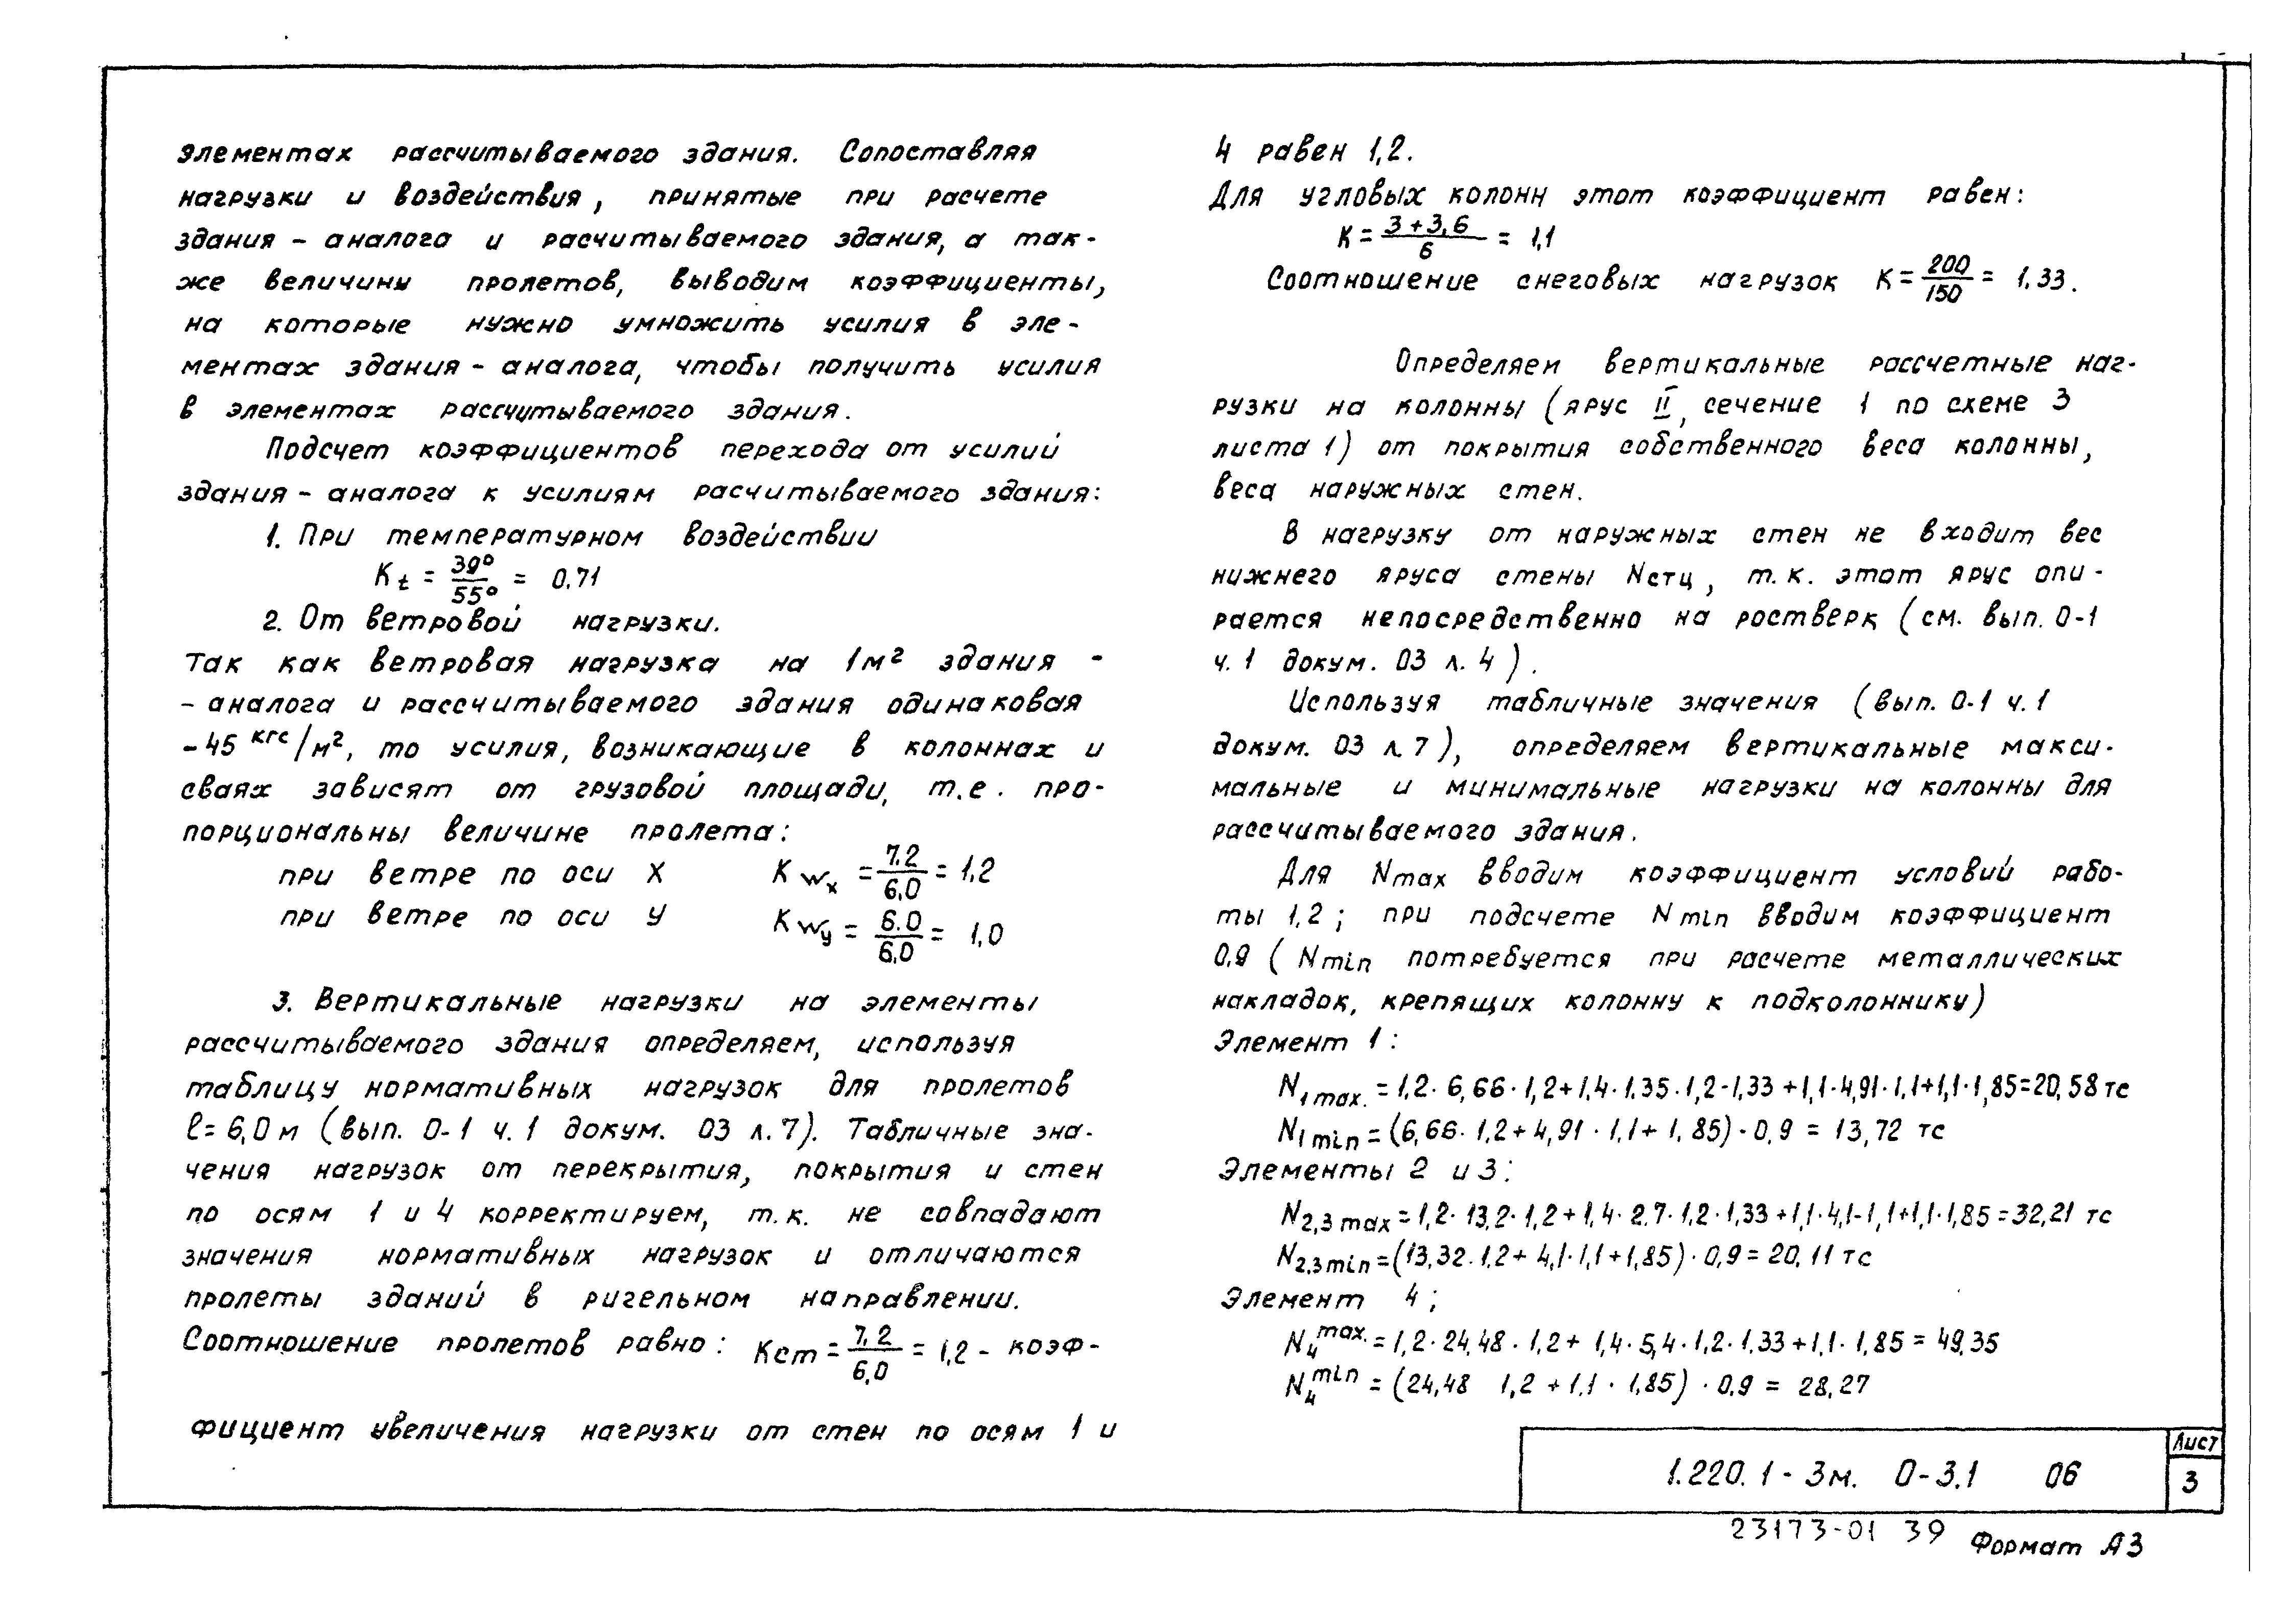 элементах рассчитываемого здания. Сопоставляя
нагрузки и воздействия, принятые при расчете
здания - аналога и расчитываемого здания, а так-
же величины пролетов, выводим коэффициенты,
на которые нужно умножить усилия в эле-
ментах здания - аналога, чтобы получить усилия
в элементах рассчитываемого здания.
Подсчет коэффициентов перехода от усилий
здания - аналога к усилиям расчитываемого здания:
1. При температурном воздействии
Kt = 39°/55° = 0,71
2. От ветровой нагрузки.
Так как ветровая нагрузка на 1м² здания -
- аналога и рассчитываемого здания одинаковая
- 45 кгс/м², то усилия, возникающие в колоннах и
сваях зависят от грузовой площади, т.е. про-
порциональны величине пролета:
при ветре по оси X Kwx = 7.2/6,0 = 1,2
при ветре по оси У Kwy = 6.0/6,0 = 1,0
3. Вертикальные нагрузки на элементы
рассчитываемого здания определяем, используя
таблицу нормативных нагрузок для пролетов
ℓ = 6,0 м (вып. 0-1 ч. 1 докум. 03 л. 7). Табличные зна-
чения нагрузок от перекрытия, покрытия и стен
по осям 1 и 4 корректируем, т.к. не совпадают
значения нормативных нагрузок и отличаются
пролеты зданий в ригельном направлении.
Соотношение пролетов равно: Kст = 7.2/6,0 = 1,2 - коэф-
фициент увеличения нагрузки от стен по осям 1 и
4 равен 1,2.
Для угловых колонн этот коэффициент равен:
K = 3+3,6/6 = 1,1
Соотношение снеговых нагрузок K = 200/150 = 1,33.
Определяем вертикальные рассчетные наг-
рузки на колонны (ярус II, сечение 1 по схеме 3
листа 1) от покрытия собственного веса колонны,
веса наружных стен.
В нагрузку от наружных стен не входит вес
нижнего яруса стены Nстц, т.к. этот ярус опи-
рается непосредственно на ростверк (см. вып. 0-1
ч. 1 докум. 03 л. 4).
Используя табличные значения (вып. 0-1 ч. 1
докум. 03 л. 7), определяем вертикальные макси-
мальные и минимальные нагрузки на колонны для
рассчитываемого здания.
Для Nmax вводим коэффициент условий рабо-
ты 1,2; при подсчете Nmin вводим коэффициент
0,9 (Nmin потребуется при расчете металлических
накладок, крепящих колонну к подколоннику)
Элемент 1:
N1max. = 1,2 · 6,66 · 1,2 + 1,4 · 1,35 · 1,2 · 1,33 + 1,1 · 4,91 · 1,1 + 1,1 · 1,85 = 20,58 тс
N1min = (6,66 · 1,2 + 4,91 · 1,1 + 1,85) · 0,9 = 13,72 тс
Элементы 2 и 3:
N2,3max = 1,2 · 13,2 · 1,2 + 1,4 · 2.7 · 1,2 · 1,33 + 1,1 · 4,1 · 1,1 + 1,1 · 1,85 = 32,21 тс
N2,3min = (13,32 · 1,2 + 4,1 · 1,1 + 1,85) · 0,9 = 20,11 тс
Элемент 4;
N4max. = 1,2 · 24,48 · 1,2 + 1,4 · 5,4 · 1,2 · 1,33 + 1,1 · 1,85 = 49,35
N4min = (24,48 1,2 + 1,1 · 1,85) · 0,9 = 28,27
1.220.1 - 3м. 0-3.1 06
Лист
3
23173-01 39
Формат А3